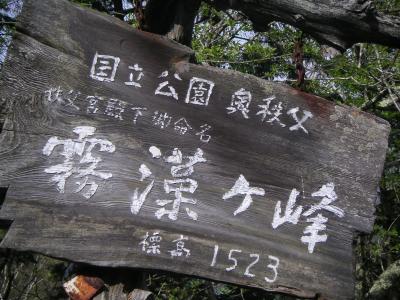 国立公園 奥秩父
秩父宮殿下御命名
霧藻ヶ峰
標高 1523